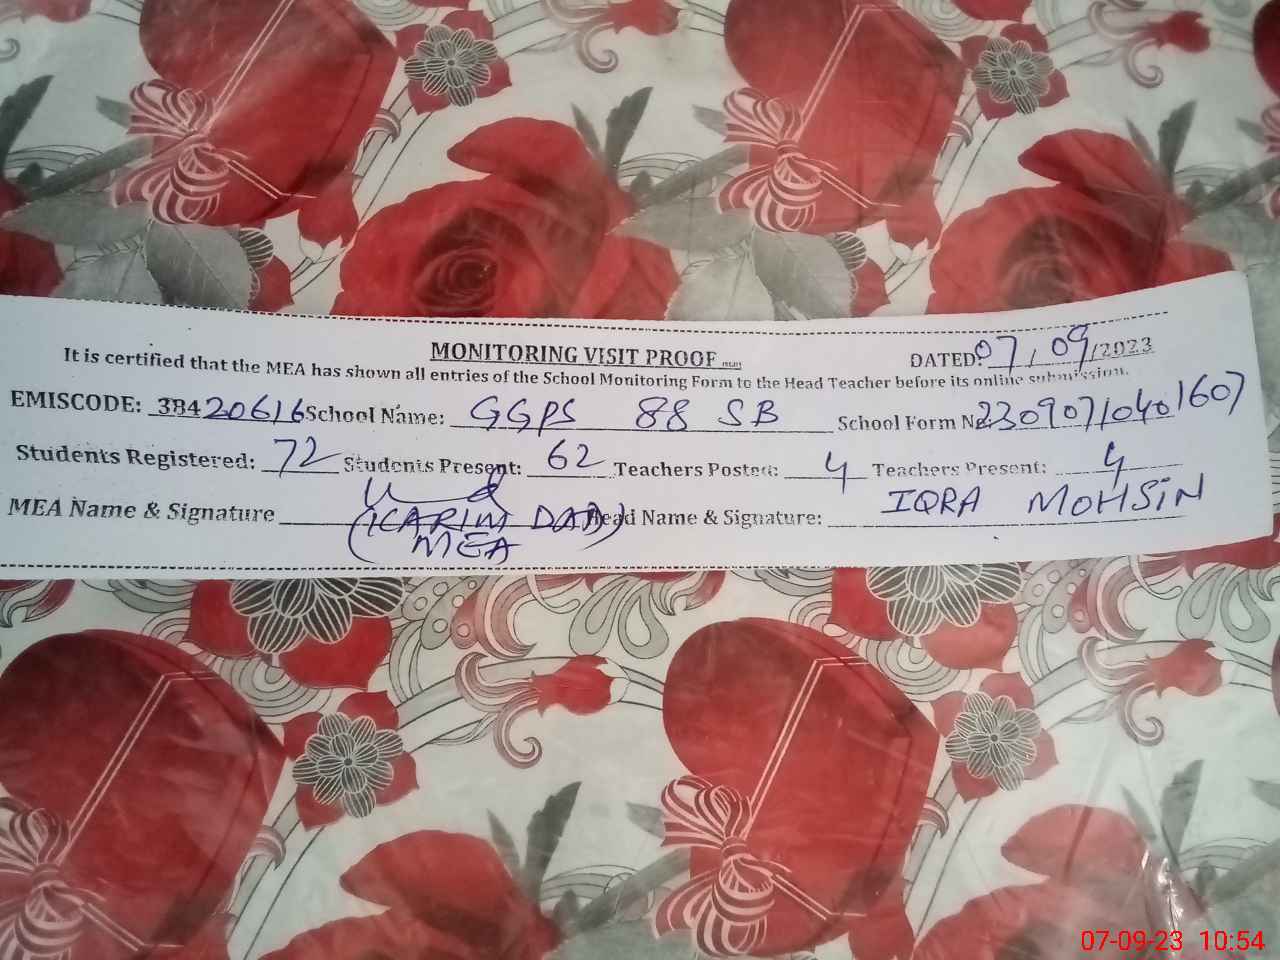 MONITORING VISIT PROOF
DATED: 07/09/2023
It is certified that the MEA has shown all entries of the School Monitoring Form to the Head Teacher before its online submission.
EMISCODE: 38420616 School Name: GGPS 88 SB School Form No 23090710401607
Students Registered: 72 Students Present: 62 Teachers Posted: 4 Teachers Present: 4
MEA Name & Signature (KARIM DAD) Head Name & Signature: IQRA MOHSiN
MEA
07-09-23 10:54